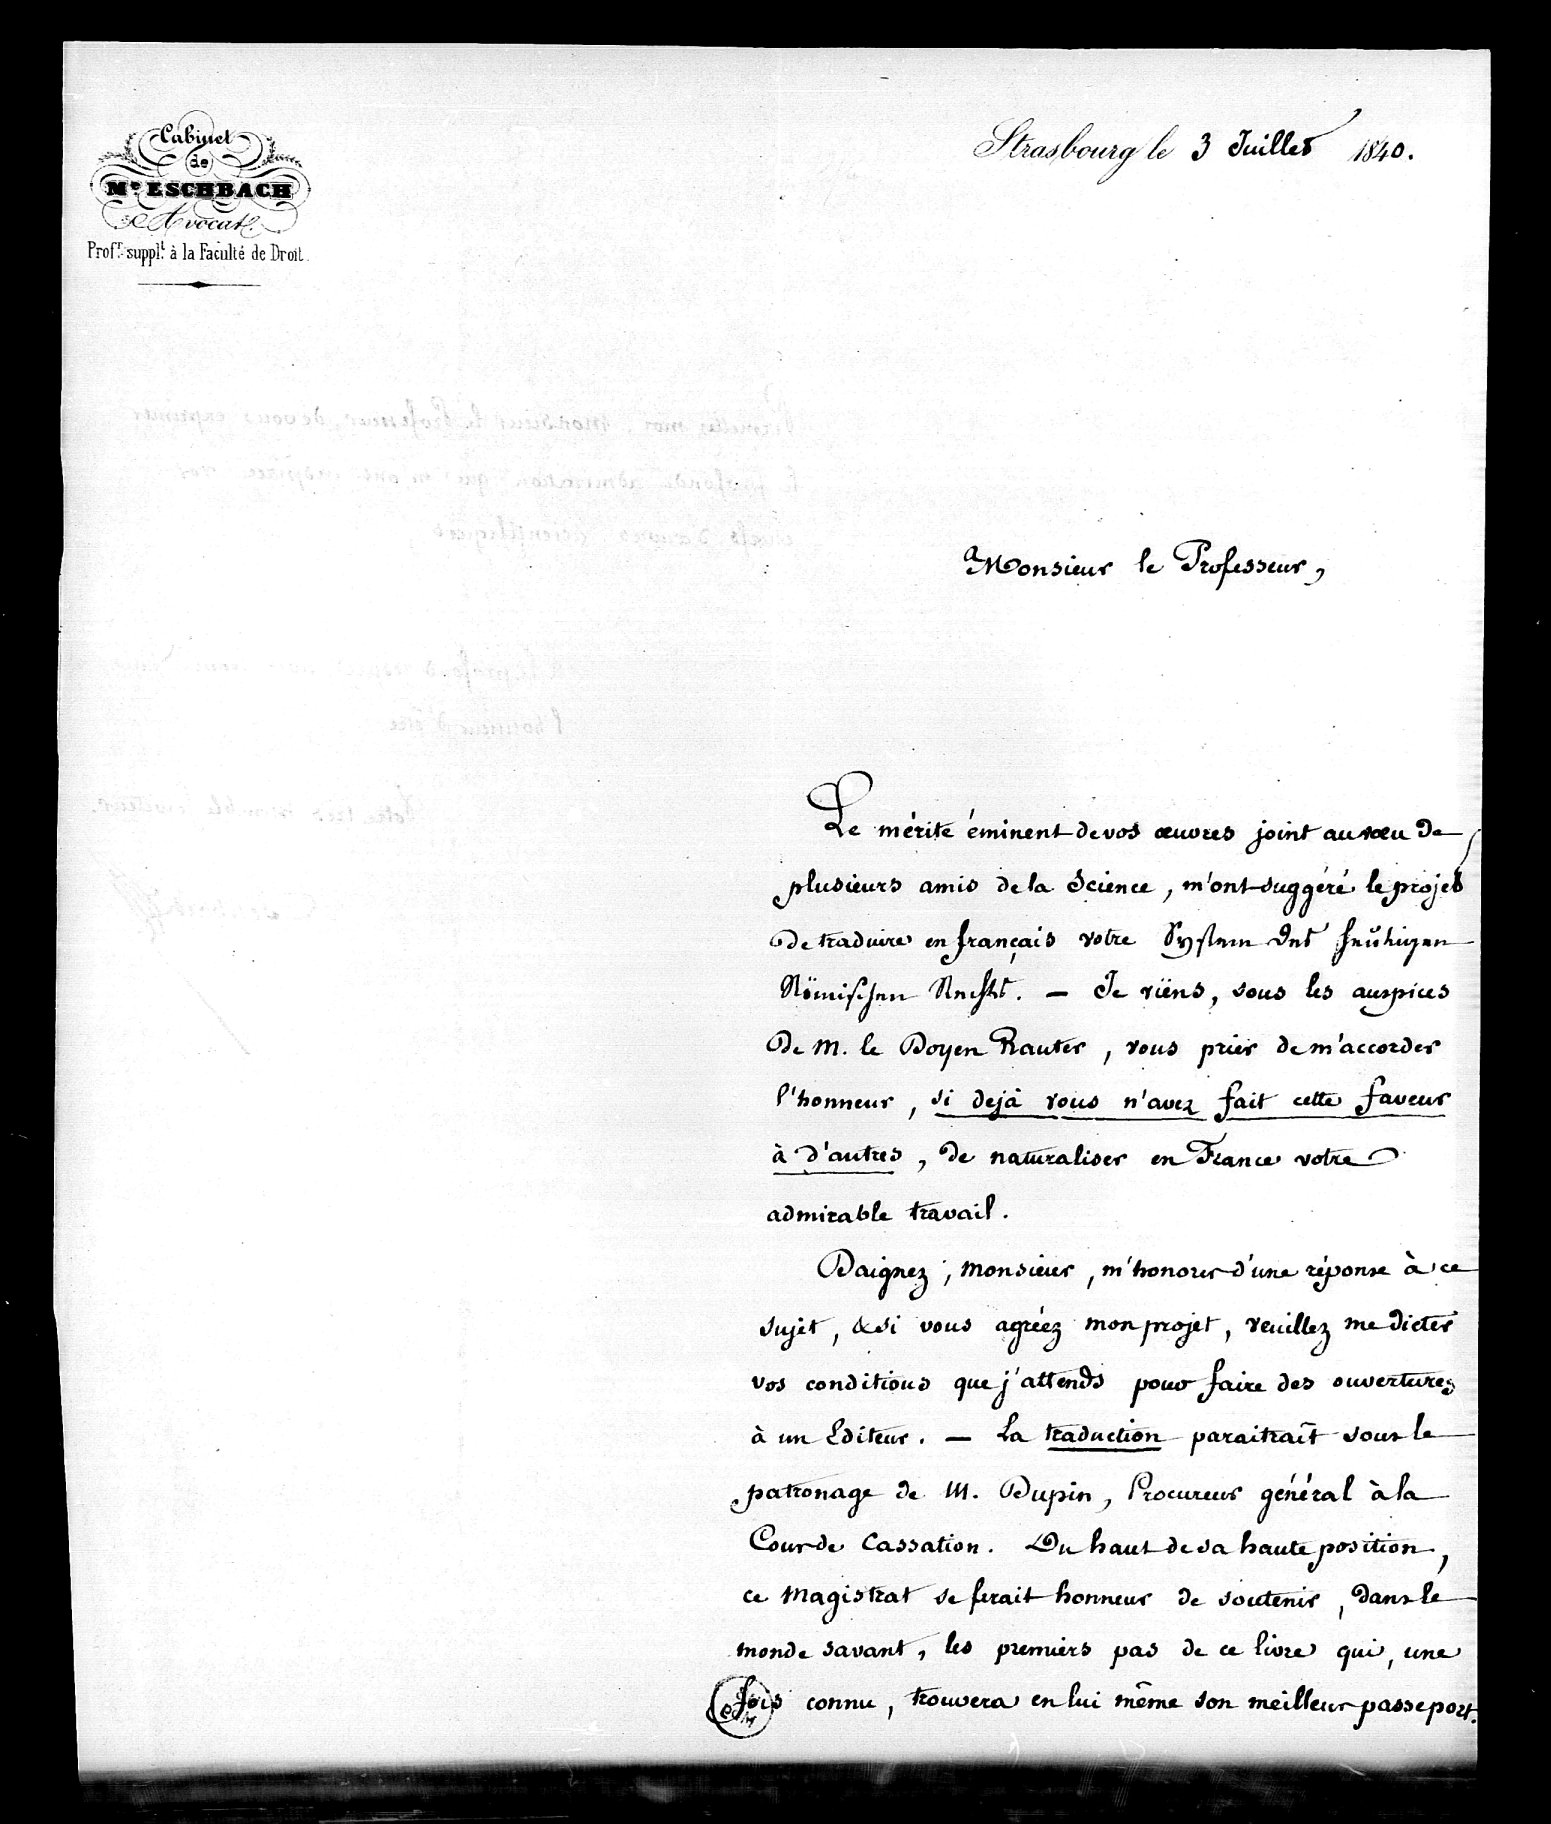 Cabinet
de
Me ESCHBACH
Avocat.
Profr. supplt. à la Faculté de Droit.
Strasbourg le 3 Juillet 1840.
Monsieur le Professeur,
Le mérite éminent de vos œuvres joint au vœu de
plusieurs amis de la Science, m'ont suggéré le projet
de traduire en français votre System des heutigen
Römischen Rechts. — Je viens, sous les auspices
de M. le Doyen Rauter, vous prier de m'accorder
l'honneur, si dejà vous n'avez fait cette faveur
à d'autres, de naturaliser en France votre
admirable travail.
Daignez, Monsieur, m'honorer d'une réponse à ce
sujet, & si vous agréez mon projet, veuillez me dicter
vos conditions que j'attends pour faire des ouvertures
à un Editeur. — La traduction paraitrait sous le
patronage de M. Dupin, Procureur général à la
Cour de Cassation. Du haut de sa haute position,
ce Magistrat se ferait honneur de soutenir, dans le
monde savant, les premiers pas de ce livre qui, une
fois connu, trouvera en lui même son meilleur passeport.